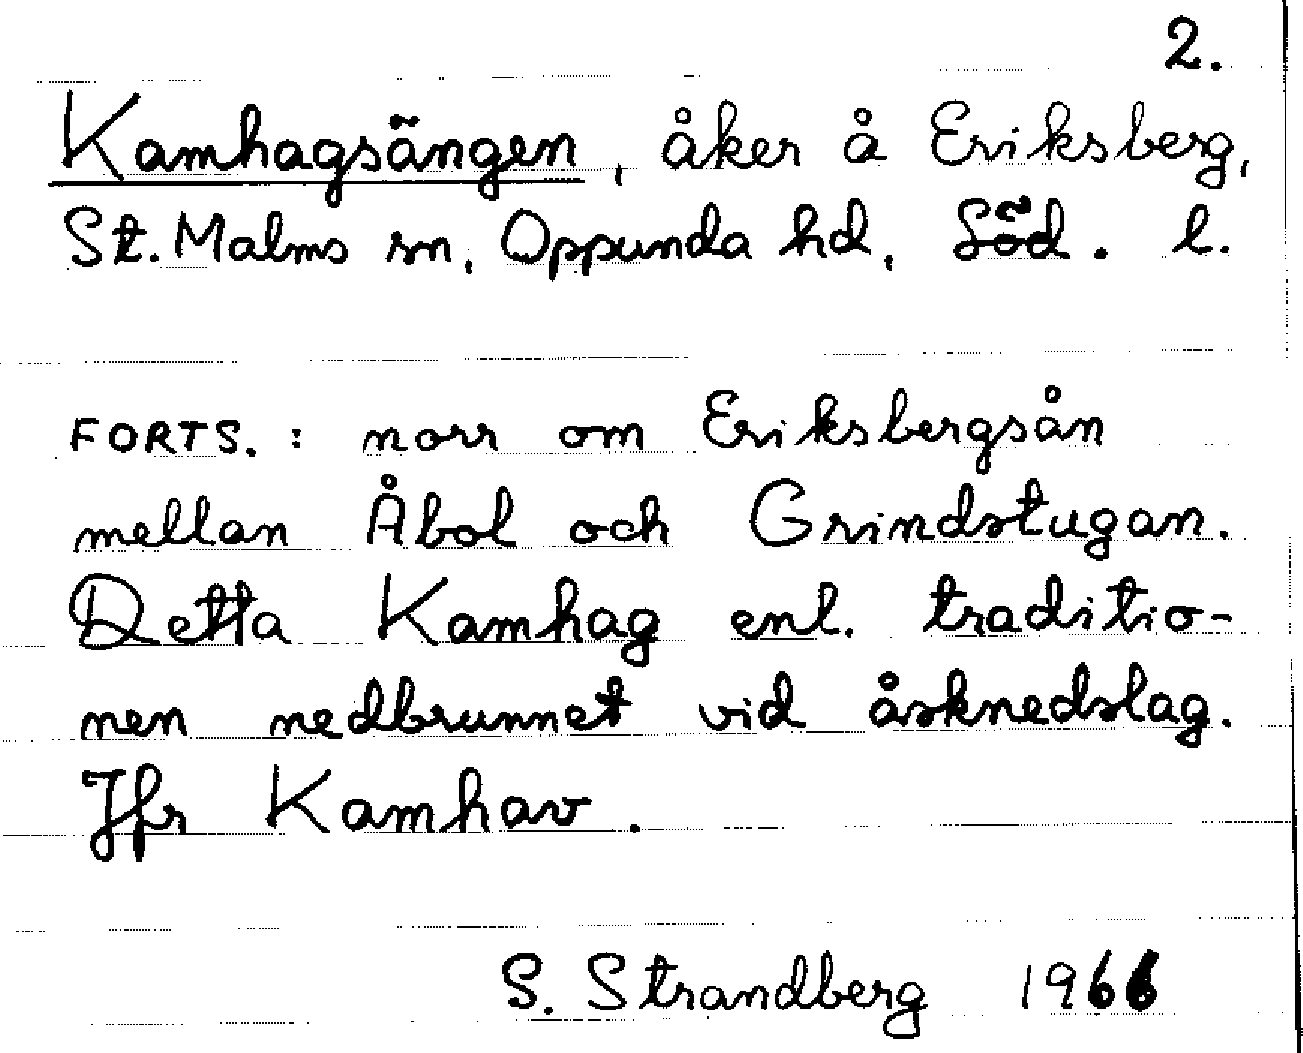 2.
Kamhagsängen, åker å Eriksberg,
St. Malms sn, Oppunda hd, Söd. l.
FORTS.: norr om Eriksbergsån
mellan Åbol och Grindstugan.
Detta Kamhag enl. traditio-
nen nedbrunnet vid åsknedslag.
Jfr Kamhav.
S. Strandberg 1966